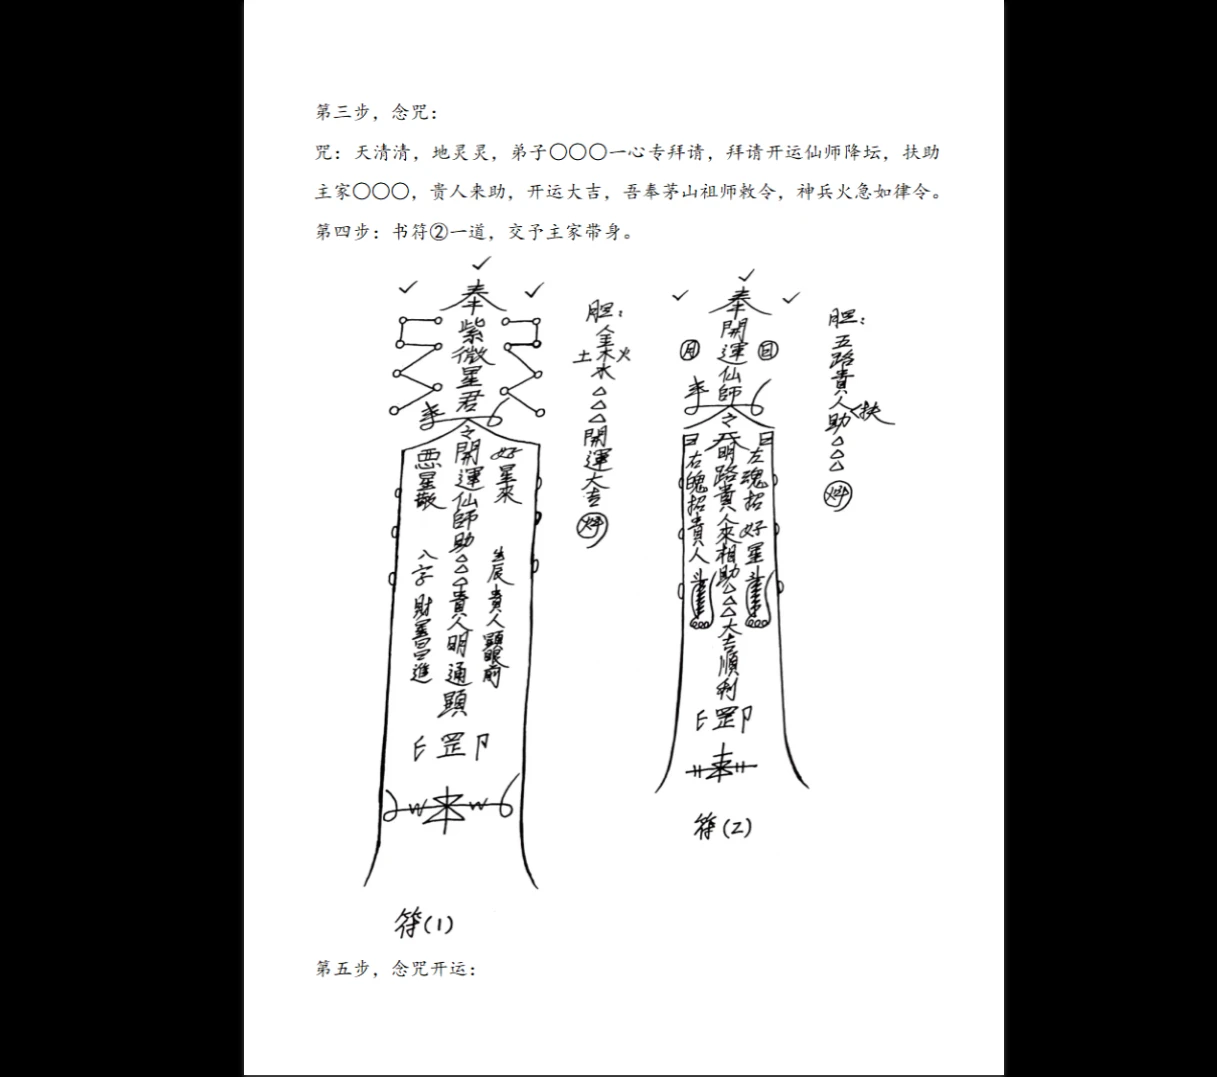 第三步，念咒：
咒：天清清，地灵灵，弟子〇〇〇一心专拜请，拜请开运仙师降坛，扶助
主家〇〇〇，贵人来助，开运大吉，吾奉茅山祖师敕令，神兵火急如律令。
第四步：书符②一道，交予主家带身。
奉
紫微星君
之開運仙師助△△△貴人明通顯
好星來
生辰貴人顯眼前
八字財
進
罡
符(1)
胆：
金木水
火
土
△△△開運大吉
奉
開運仙師
月
日
之
明路貴人來相助△△△大吉順利
左魂招好星
右魄招貴人
罡
符(2)
胆：五路貴人扶助△△△
第五步，念咒开运：